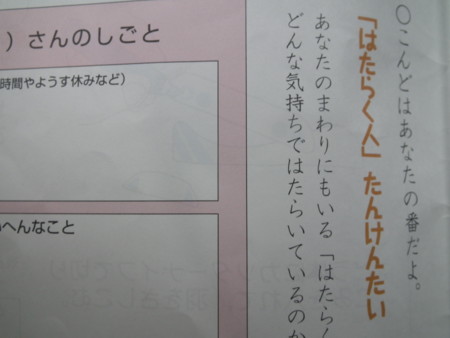 ○こんどはあなたの番だよ。
「はたらく人」たんけんたい
あなたのまわりにもいる「はたらく
どんな気持ちではたらいているのか
）さんのしごと
時間やようす休みなど）
へんなこと